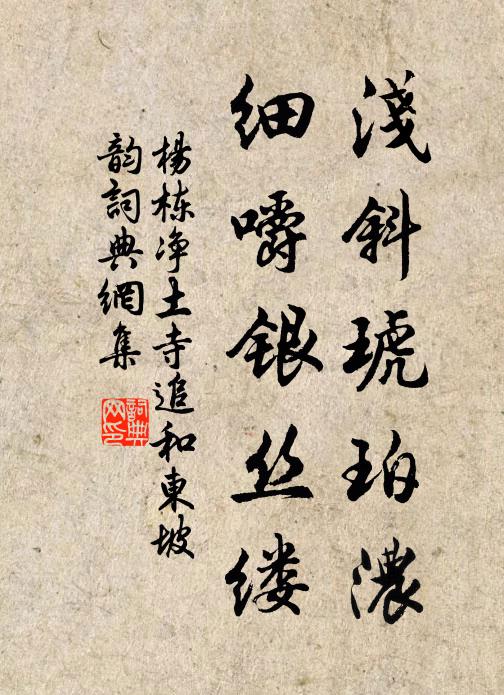 淺斜琥珀濃
细嚼银丝缕
楊栋净土寺追和東坡
韵詞典網集
詞典网印